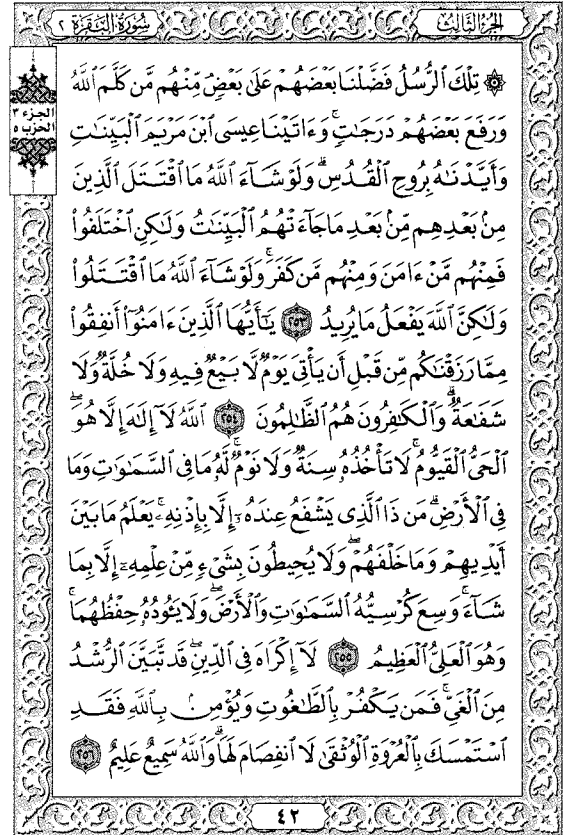 الجزء الثالث
سورة البقرة ٢
الجزء ٣
الحزب ٥
۞ تِلْكَ ٱلرُّسُلُ فَضَّلْنَا بَعْضَهُمْ عَلَىٰ بَعْضٍ مِّنْهُم مَّن كَلَّمَ ٱللَّهُ
وَرَفَعَ بَعْضَهُمْ دَرَجَٰتٍ ۚ وَءَاتَيْنَا عِيسَى ٱبْنَ مَرْيَمَ ٱلْبَيِّنَٰتِ
وَأَيَّدْنَٰهُ بِرُوحِ ٱلْقُدُسِ ۗ وَلَوْ شَآءَ ٱللَّهُ مَا ٱقْتَتَلَ ٱلَّذِينَ
مِنۢ بَعْدِهِم مِّنۢ بَعْدِ مَا جَآءَتْهُمُ ٱلْبَيِّنَٰتُ وَلَٰكِنِ ٱخْتَلَفُوا۟
فَمِنْهُم مَّنْ ءَامَنَ وَمِنْهُم مَّن كَفَرَ ۚ وَلَوْ شَآءَ ٱللَّهُ مَا ٱقْتَتَلُوا۟
وَلَٰكِنَّ ٱللَّهَ يَفْعَلُ مَا يُرِيدُ ٢٥٣ يَٰٓأَيُّهَا ٱلَّذِينَ ءَامَنُوٓا۟ أَنفِقُوا۟
مِمَّا رَزَقْنَٰكُم مِّن قَبْلِ أَن يَأْتِىَ يَوْمٌ لَّا بَيْعٌ فِيهِ وَلَا خُلَّةٌ وَلَا
شَفَٰعَةٌ ۗ وَٱلْكَٰفِرُونَ هُمُ ٱلظَّٰلِمُونَ ٢٥٤ ٱللَّهُ لَآ إِلَٰهَ إِلَّا هُوَ
ٱلْحَىُّ ٱلْقَيُّومُ ۚ لَا تَأْخُذُهُۥ سِنَةٌ وَلَا نَوْمٌ ۚ لَّهُۥ مَا فِى ٱلسَّمَٰوَٰتِ وَمَا
فِى ٱلْأَرْضِ ۗ مَن ذَا ٱلَّذِى يَشْفَعُ عِندَهُۥٓ إِلَّا بِإِذْنِهِۦ ۚ يَعْلَمُ مَا بَيْنَ
أَيْدِيهِمْ وَمَا خَلْفَهُمْ ۖ وَلَا يُحِيطُونَ بِشَىْءٍ مِّنْ عِلْمِهِۦٓ إِلَّا بِمَا
شَآءَ ۚ وَسِعَ كُرْسِيُّهُ ٱلسَّمَٰوَٰتِ وَٱلْأَرْضَ ۖ وَلَا يَـُٔودُهُۥ حِفْظُهُمَا ۚ
وَهُوَ ٱلْعَلِىُّ ٱلْعَظِيمُ ٢٥٥ لَآ إِكْرَاهَ فِى ٱلدِّينِ ۖ قَد تَّبَيَّنَ ٱلرُّشْدُ
مِنَ ٱلْغَىِّ ۚ فَمَن يَكْفُرْ بِٱلطَّٰغُوتِ وَيُؤْمِنۢ بِٱللَّهِ فَقَدِ
ٱسْتَمْسَكَ بِٱلْعُرْوَةِ ٱلْوُثْقَىٰ لَا ٱنفِصَامَ لَهَا ۗ وَٱللَّهُ سَمِيعٌ عَلِيمٌ ٢٥٦
٤٢